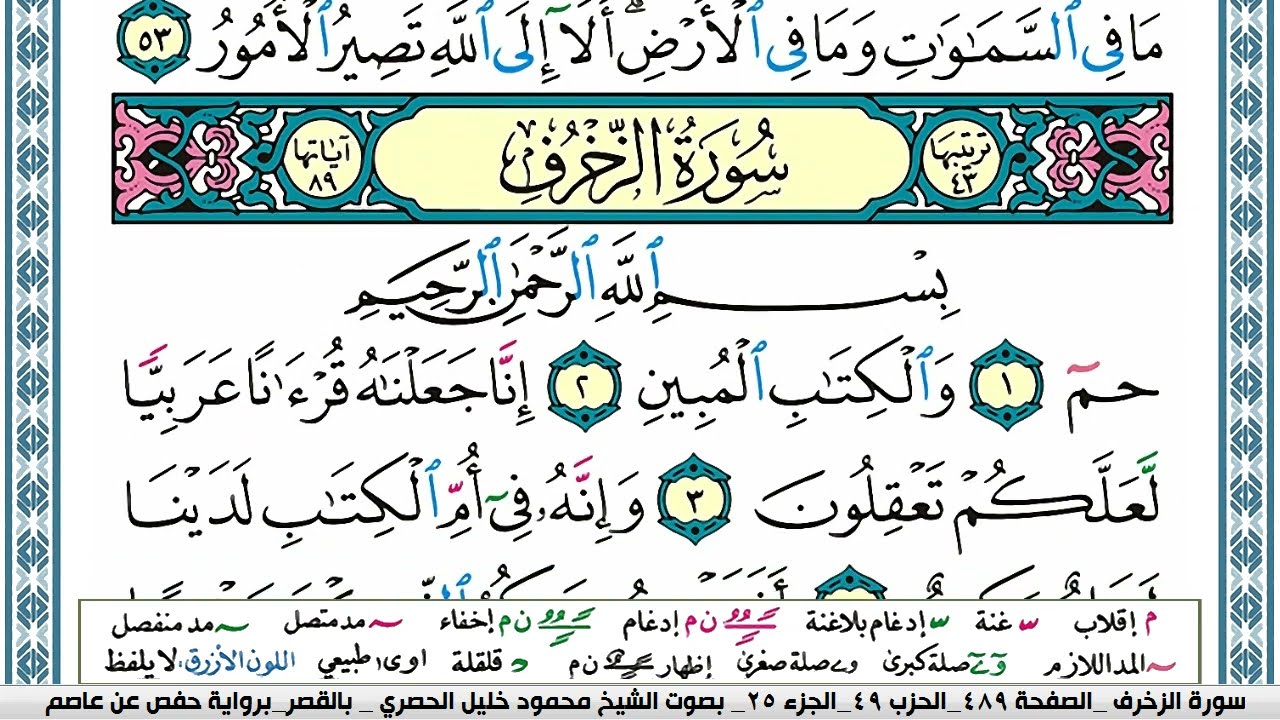 مَا فِى ٱلسَّمَـٰوَٰتِ وَمَا فِى ٱلْأَرْضِ ۗ أَلَآ إِلَى ٱللَّهِ تَصِيرُ ٱلْأُمُورُ ٥٣
ترتيبها ٤٣ سُورَةُ الزُّخْرُفِ آياتها ٨٩
بِسْمِ ٱللَّهِ ٱلرَّحْمَـٰنِ ٱلرَّحِيمِ
حمٓ ١ وَٱلْكِتَـٰبِ ٱلْمُبِينِ ٢ إِنَّا جَعَلْنَـٰهُ قُرْءَٰنًا عَرَبِيًّا
لَّعَلَّكُمْ تَعْقِلُونَ ٣ وَإِنَّهُۥ فِىٓ أُمِّ ٱلْكِتَـٰبِ لَدَيْنَا
م إقلاب س غنة س إدغام بلاغنة ن م إدغام ن م إخفاء مد متصل مد منفصل
المد اللازم صلة كبرى صلة صغرى إظهار ن م قلقلة اوى طبيعي اللون الأزرق: لا يلفظ
سورة الزخرف _الصفحة ٤٨٩_الحزب ٤٩_الجزء ٢٥_ بصوت الشيخ محمود خليل الحصري _ بالقصر_برواية حفص عن عاصم